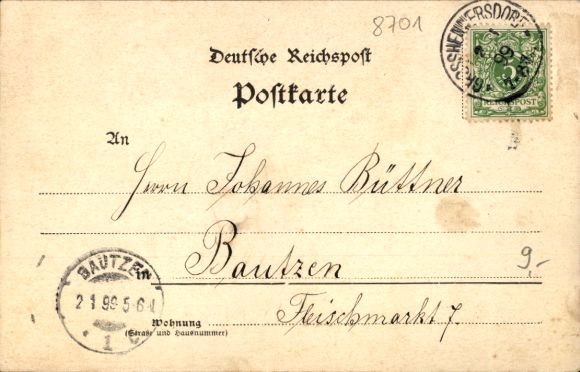 8701
Deutsche Reichspost
Postkarte
GROSSHENNERSDORF
99
5
REICHSPOST
An
Herrn Johannes Büttner
in Bautzen
9.-
BAUTZEN
2 1 99 5-6 N
1 c
Fleischmarkt 7.
Wohnung
(Straße und Hausnummer)